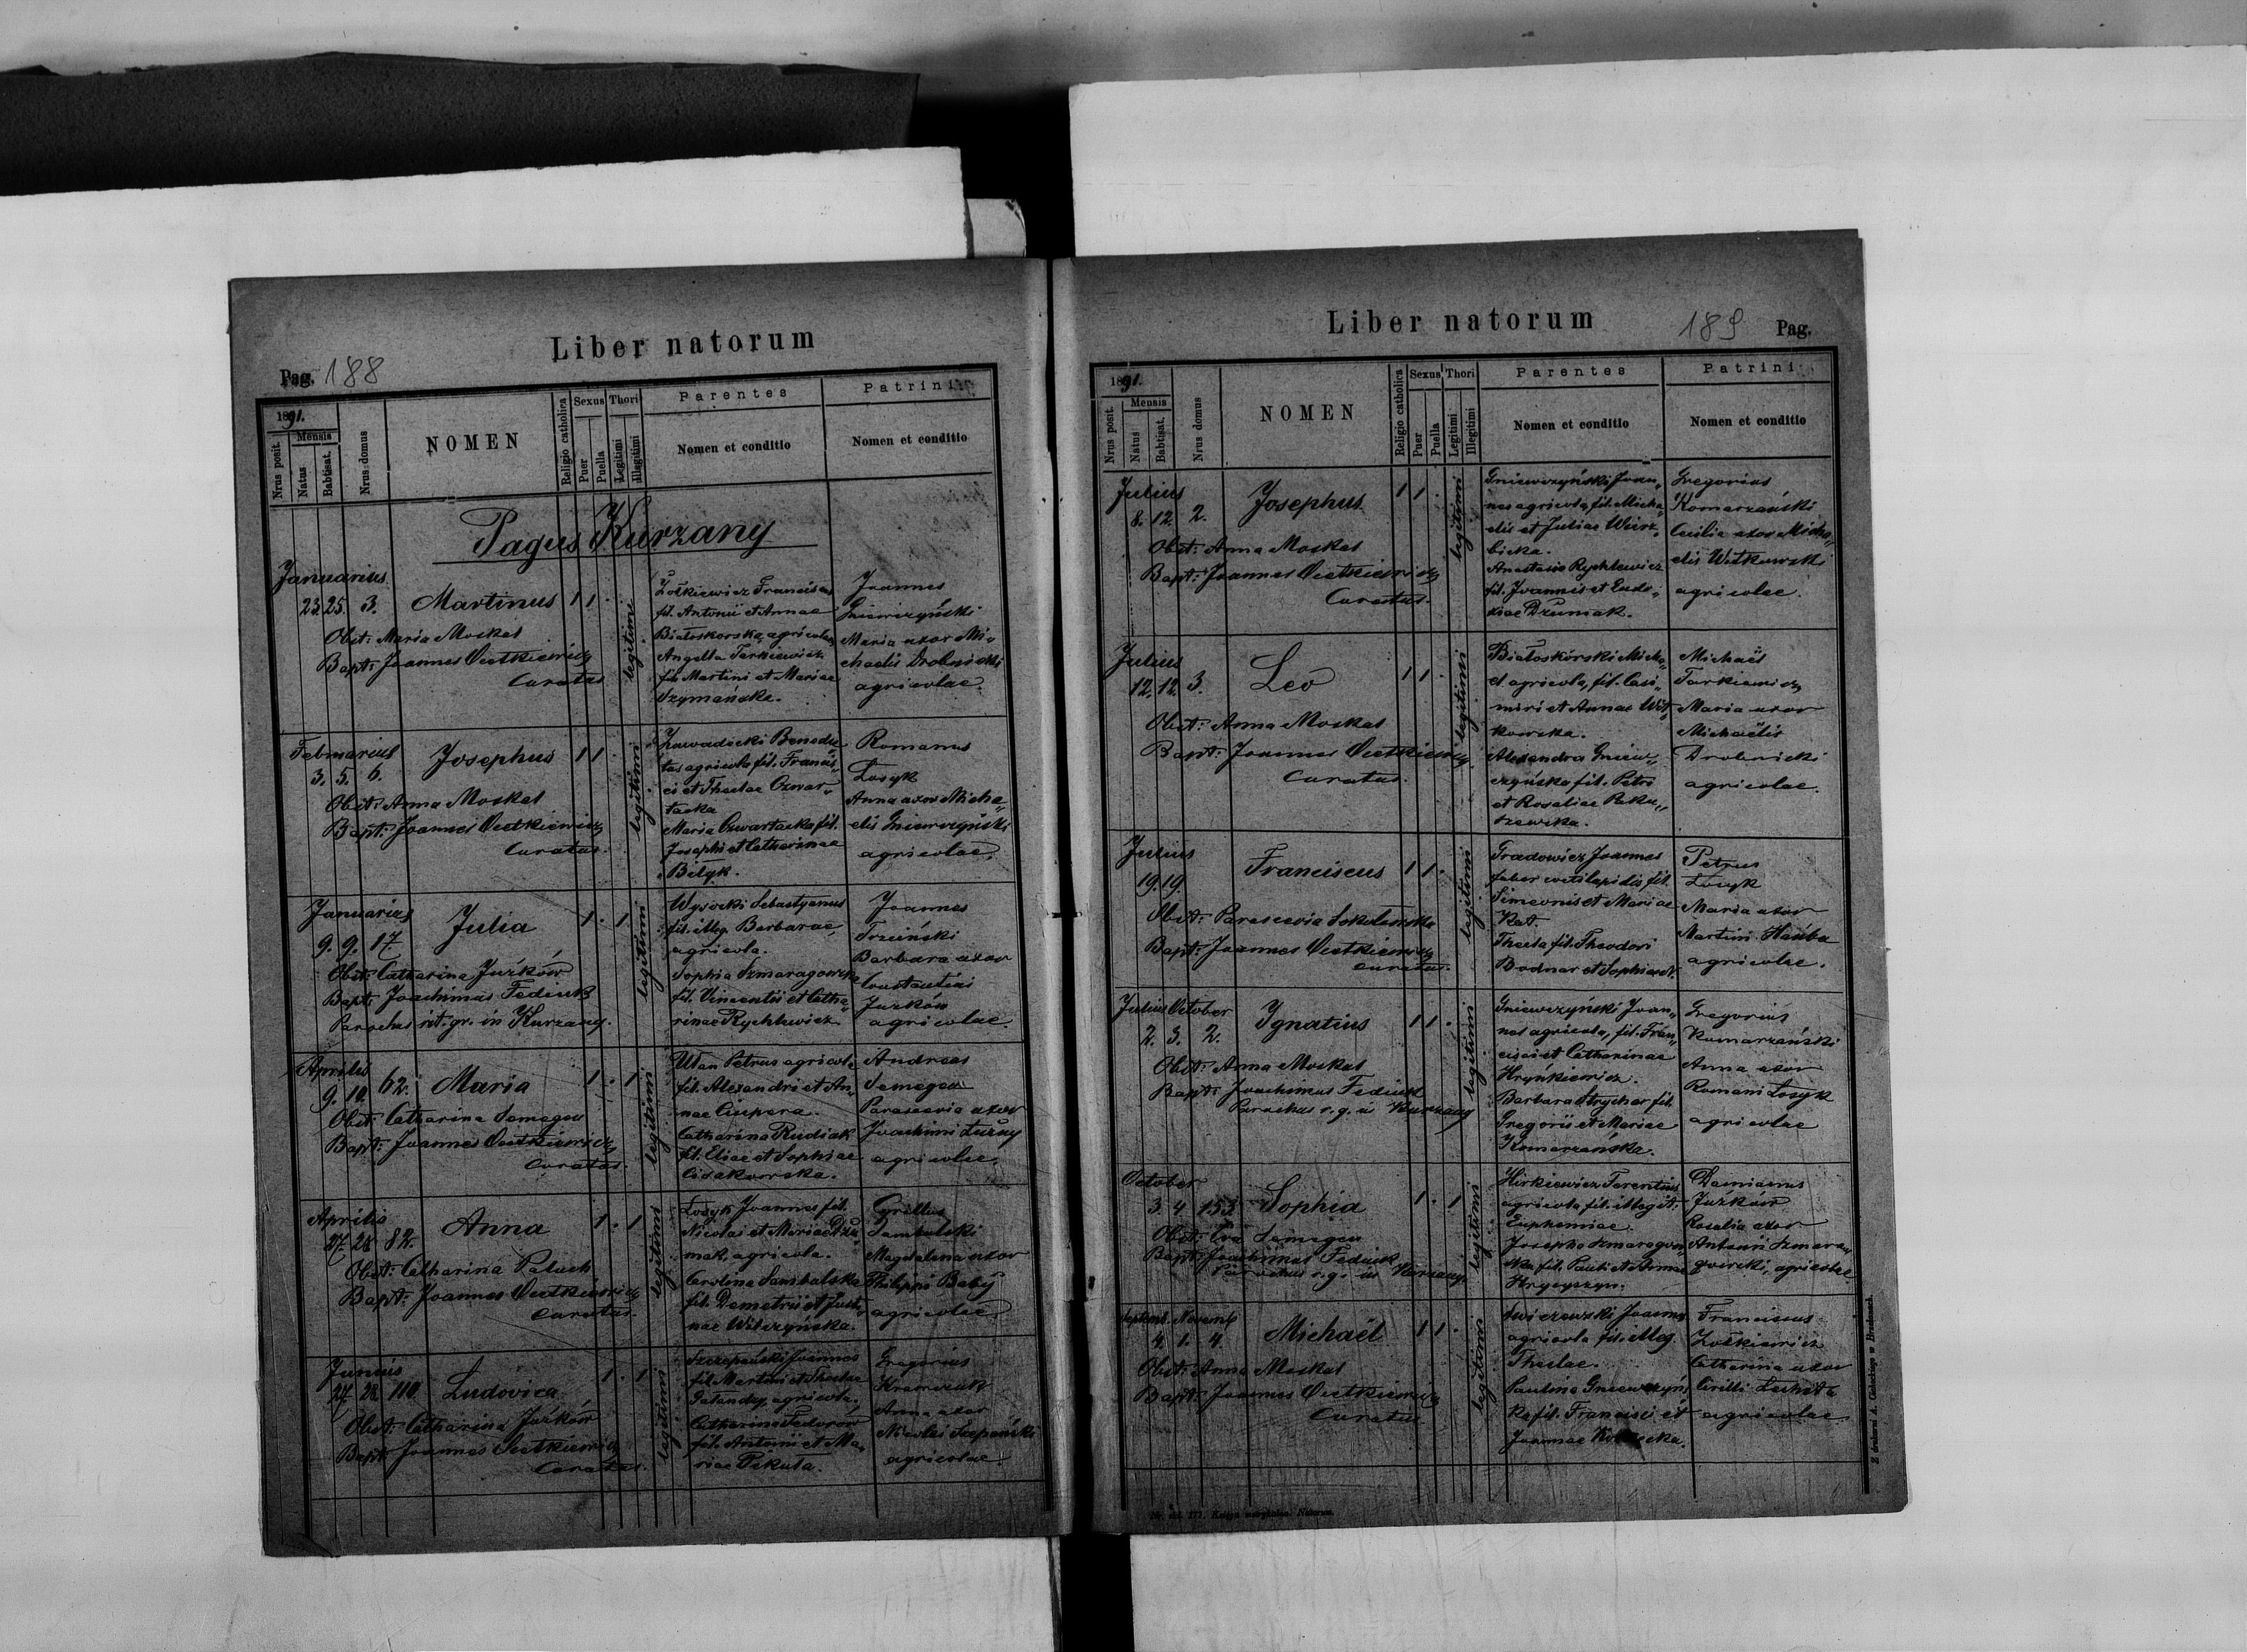 Liber natorum
Pag. 188
1891.
Nrus posit.
Mensis
Natus
Babtisat.
Nrus domus
NOMEN
Religio catholica
Sexus
Puer
Puella
Thori
Legitimi
Illegitimi
Parentes
Nomen et conditio
Patrini
Nomen et conditio
Pagus Kurzany
Januarius
23. 25. 3. Martinus 1 1 .
Obst: Maria Moskal
Bapt: Joannes
Curatus
legitimi
Żołkiewicz Franciscus
fil. Antonii et Annae
Białoskorska, agricolae
Angella Tarkiewicz
fil. Martini et Mariae
Szymańska.
Joannes
Gniewczyński
Maria uxor Mi„
chaelis Drobnicki
agricolae.
Februarius
3. 5. 6. Josephus 1 1 .
Obst: Anna Moskal
Bapt: Joannes
Curatus.
legitimi
Zawadzki Benedic
tus agricola fil. Francis„
ci et Theclae Czwar„
tacka
Maria Czwartacka fil.
Josephi et Catharinae
Bełyk.
Romanus
Łosyk
Anna uxor Micha„
elis Gniewczyński
agricolae.
Januarius
9. 9. 17 Julia 1 . 1
Obst: Catharina Jurków
Bapt: Joachimus Fediuk
Parochus rit. gr. in Kurzany.
legitimi
Wysocki Sebastyanus
fil. illeg. Barbarae,
agricola.
Sophia Szmaragowska
fil. Vincentii et Catha„
rinae Rychlewicz
Joannes
Trzciński
Barbara uxor
Constantini
Jurków
agricolae.
Aprilis
9. 10. 62. Maria 1 . 1
Obst: Catharina Semegen
Bapt: Joannes
Curatus.
legitimi
Ulan Petrus agricola
fil. Alexandri et An„
nae Ciupera.
Catharina Rudiak
fil. Eliae et Sophiae
Andreas
Semegen
Parascevia uxor
Joachimi Łużny
agricolae.
Aprilis
27. 28. 82. Anna 1 . 1
Obst: Catharina Paluch
Bapt: Joannes
Curatus.
legitimi
Łosyk Joannes fil.
Nicolai et Mariae Dżu„
mak, agricola.
Carolina Sambulska
fil. Demetrii et Justi„
nae Wilczyńska.
Cyrillus
Sambulski
Magdalena uxor
Philippi Baby
agricolae
Junius
27. 28. 110. Ludovica 1 . 1
Obst: Catharina Jurków
Bapt: Joannes
Curatus.
legitimi
Szczepański Joannes
fil. Martini et Theclae
agricola.
Catharina Fedorów
fil. Antonii et Ma„
riae Pikuła.
Gregorius
Krawczuk
Anna uxor
Nicolai Szczepański
agricolae.
Liber natorum
189 Pag.
1891.
Nrus posit.
Mensis
Natus
Babtisat.
Nrus domus
NOMEN
Religio catholica
Sexus
Puer
Puella
Thori
Legitimi
Illegitimi
Parentes
Nomen et conditio
Patrini
Nomen et conditio
Julius
8. 12. 2. Josephus 1 1 .
Obst: Anna Moskal
Bapt: Joannes
Curatus.
legitimi
Gniewczyński Joan„
nes agricola, fil. Micha„
elis et Juliae Wierz„
bicka.
Anastasia Rychlewicz
fil. Joannis et Eudo„
xiae Dżumak.
Gregorius
Komarzański
Cecilia uxor Micha„
elis Witkowski
agricolae.
Julius
12. 12. 3. Leo 1 1 .
Obst: Anna Moskal
Bapt: Joannes
Curatus.
legitimi
Białoskórski Micha„
el agricola, fil. Casi„
miri et Annae Wit„
kowska.
Alexandra Gniew„
czyńska fil. Petri
et Rosaliae
Michaël
Tarkiewicz
Maria uxor
Michaëlis
Drobnicki
agricolae.
Julius
19. 19. Franciscus 1 1 .
Obst: Parascevia Sokulanska
Bapt: Joannes
curatus.
legitimi
Joannes
faber fil.
Simeonis et Mariae
Kat.
Thecla fil. Theodori
Bodnar et Sophiae N.
Petrus
Łosyk
Maria uxor
Martini Hanba
agricolae.
Julius October
2. 3. 2. Ignatius 1 1 .
Obst: Anna Moskal
Bapt: Joachimus Fediuk
Parochus r. g. in Kurzany
legitimi
Gniewczyński Joan„
nes agricola, fil. Fran„
cisci et Catharinae
Hryńkiewicz.
Barbara Strychar fil.
Gregorii et Mariae
Komarzańska.
Gregorius
Komarzański
Anna uxor
Romani Łosyk
agricolae
October
3. 4. 153. Sophia 1 . 1
Obst: Eva Semegen
Bapt: Joachimus Fediuk
Parochus r. g. in Kurzany.
legitimi
Hirkiewicz Terentius
agricola fil. illegit.
Euphemiae.
Josepha Szmaragow„
ska fil. Pauli et Annae
Hrycyszyn.
Damianus
Jurków
Rosalia uxor
Antonii Szmara„
gowski, agricolae
Septemb. Novemb
4. 1. 4. Michaël 1 1 .
Obst: Anna Moskal
Bapt: Joannes
Curatus
legitimi
Joannes
agricola fil. illeg.
Theclae.
Paulina Gniewczyńs
ka fil. Francisci et
Joannae
Franciscus
Żołkiewicz
Catharina uxor
Cirilli
agricolae
Nr. 177. Księga metrykalna. Natorum.
Z drukarni A. w Brzeżanach.